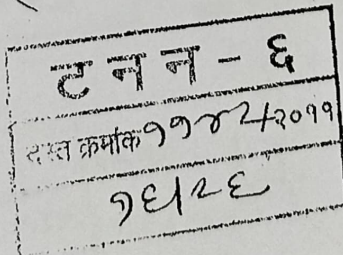 टनन - ६
दस्त क्रमांक ११४२/२०११
१६/२६